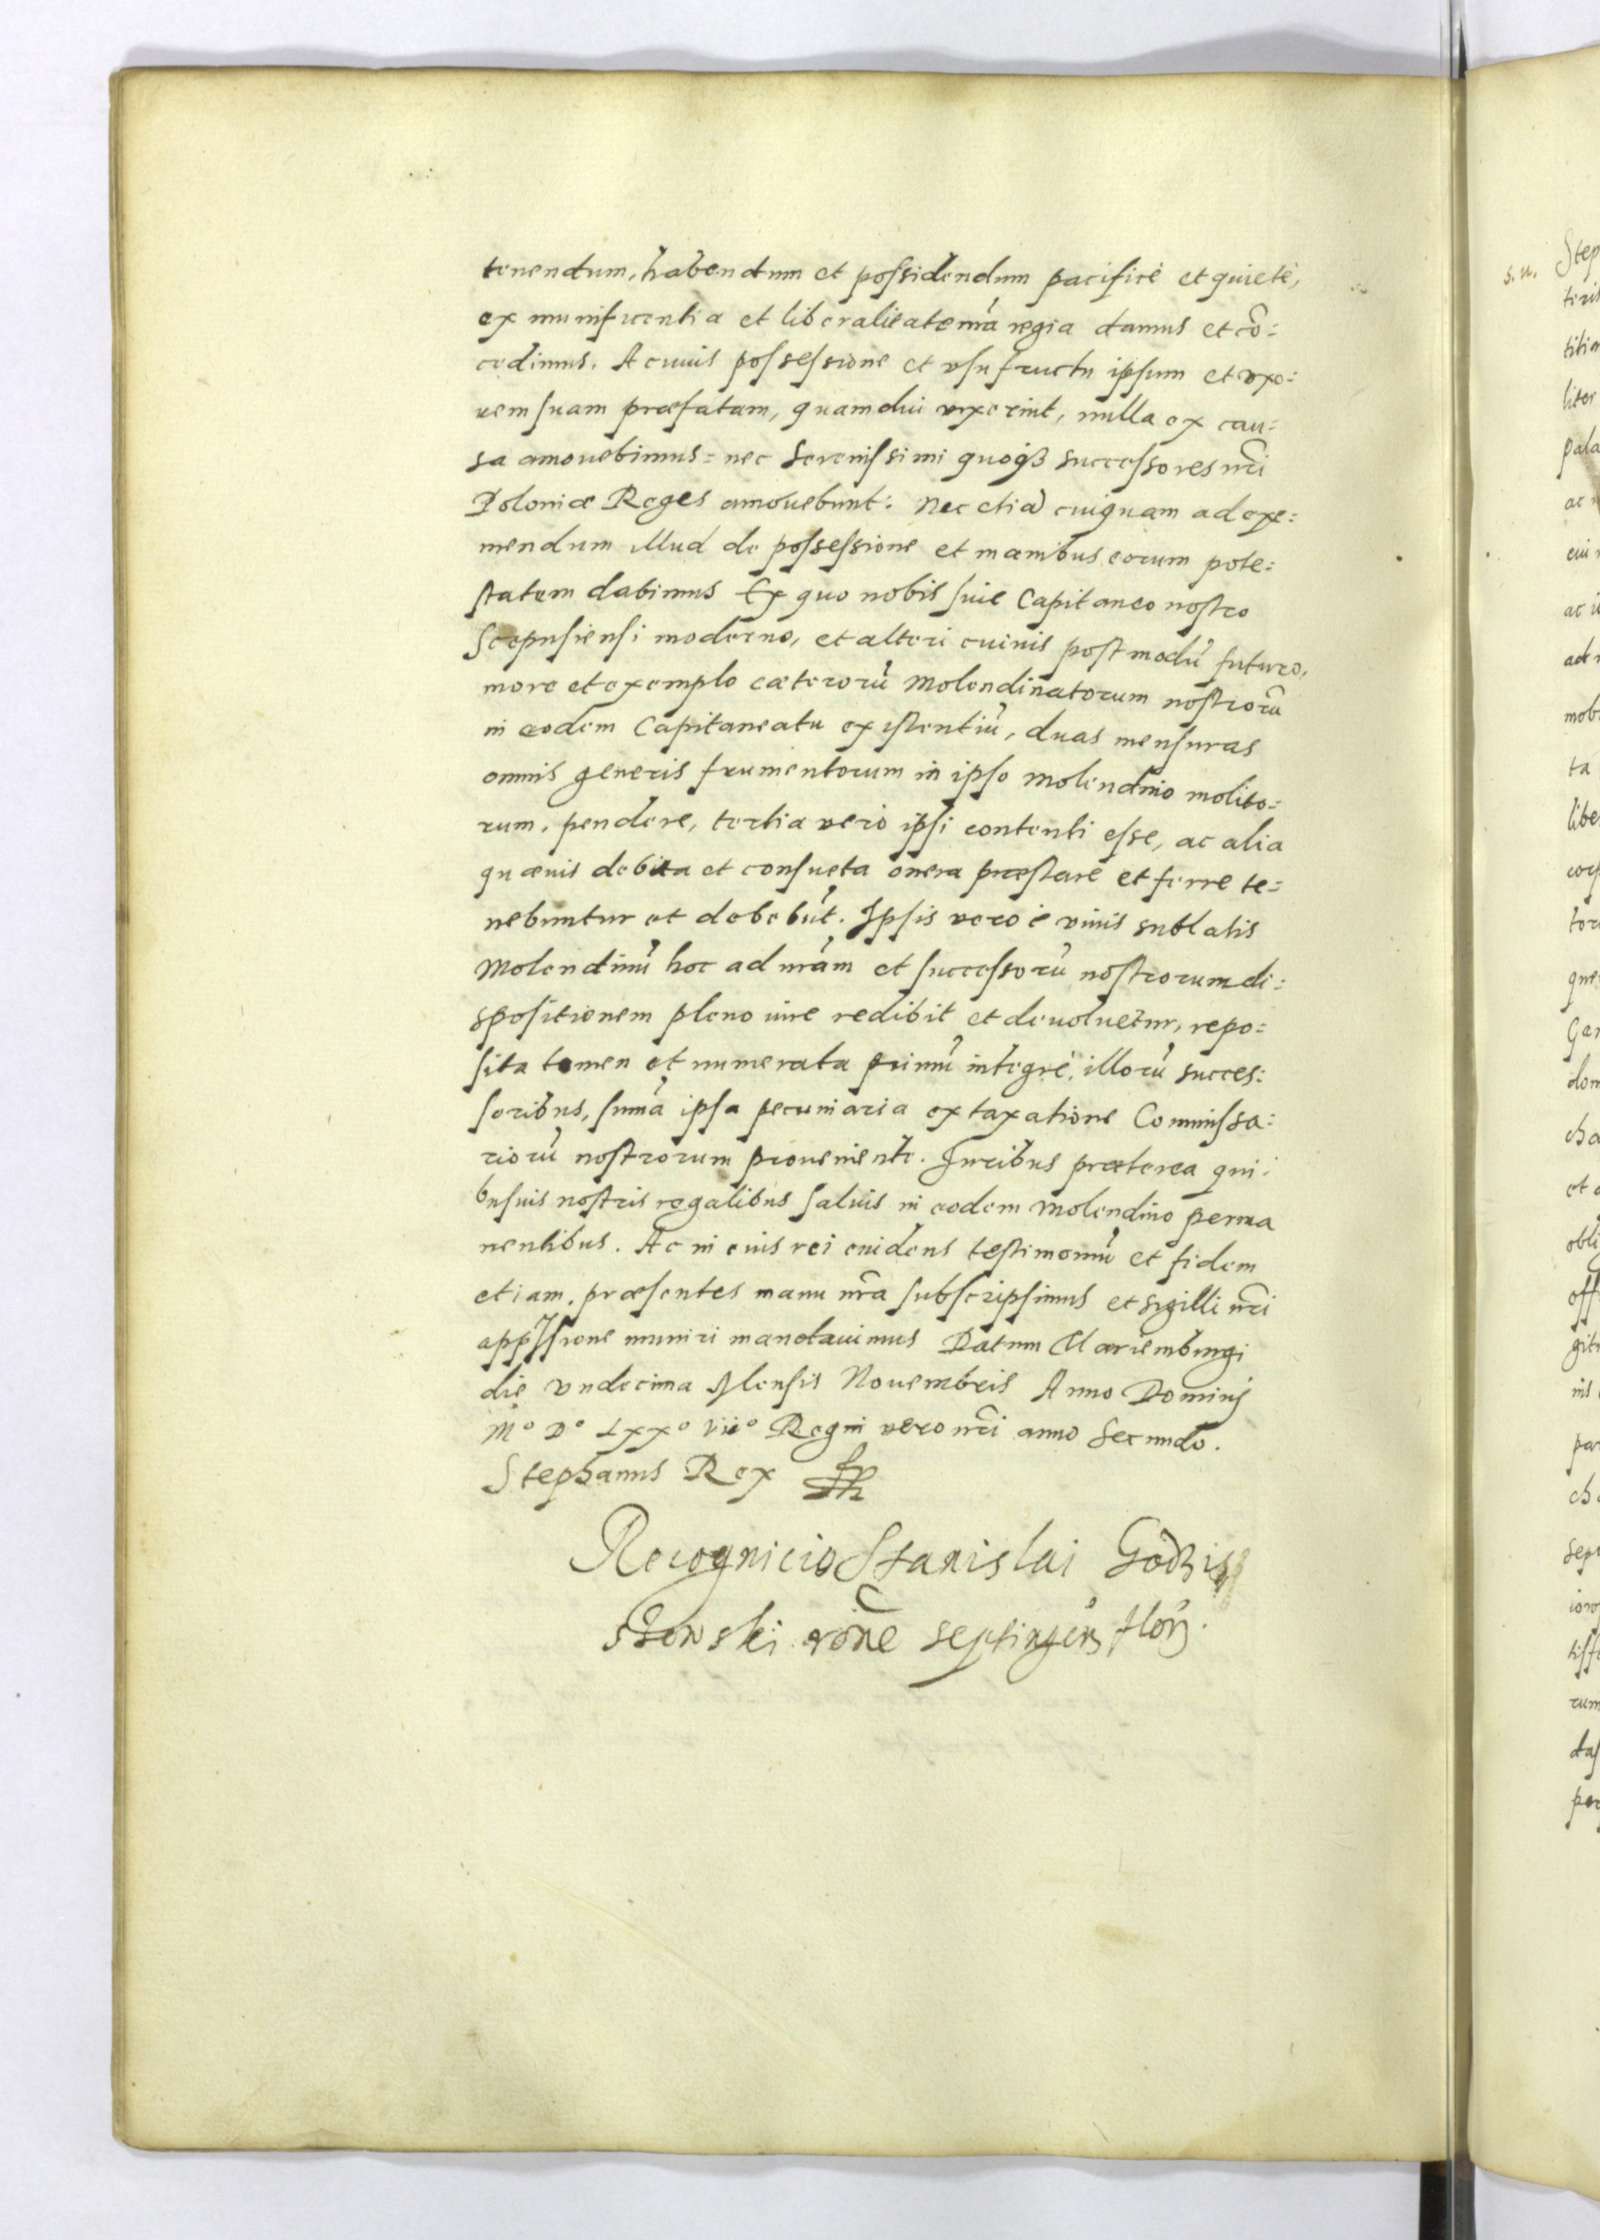 tenendum, habendum et possidendum pacificè et quietè,
ex munificentia et liberalitate nrã regia damus et cõ=
cedimus. A cuius possessione et vsufructu ipsum et vxo=
rem suam præfatam, quamdiu vixerint, nulla ex cau=
sa amouebimus= nec Serenissimi quoqȝ successores nri
Poloniæ Reges amouebunt: Nec etiã cuiquam ad exi=
mendum illud de possessione et manibus eorum pote=
statem dabimus Ex quo nobis siue Capitaneo nostro
Scepusiensi moderno, et alteri cuiuis postmodũ futuro,
more et exemplo cæterorũ Molendinatorum nostrorũ
in eodem Capitaneatu existentiũ, duas mensuras
omnis generis frumentorum in ipso Molendino molito=
rum, pendere, tertia verò ipsi contenti esse, ac alia
quæuis debita et consueta onera præstare et ferre te=
nebuntur et debebũt. Ipsis vero è viuis sublatis
Molendinũ hoc ad nrãm et successorũ nostrorum di=
spositionem pleno iure redibit et deuoluetur, repo=
sita tamen et numerata primũ integrè, illorũ succes=
soribus, sumã ipsa pecuniaria ex taxatione Commissa=
riorũ nostrorum proueniente. Iuribus præterea qui=
busuis nostris regalibus saluis in eodem Molendino perma
nentibus. Ac in eius rei euidens testimoniũ et fidem
etiam, præsentes manu nrã subscripsimus et sigilli nri
appressione muniri mandauimus Datum Mariemburgi
die vndecima Mensis Nouembris Anno Dominj
M° D° Lxx° vii° Regni vero nri anno Secundo.
Stephanus Rex
Recognicio Stanislai
rõne septingen flor